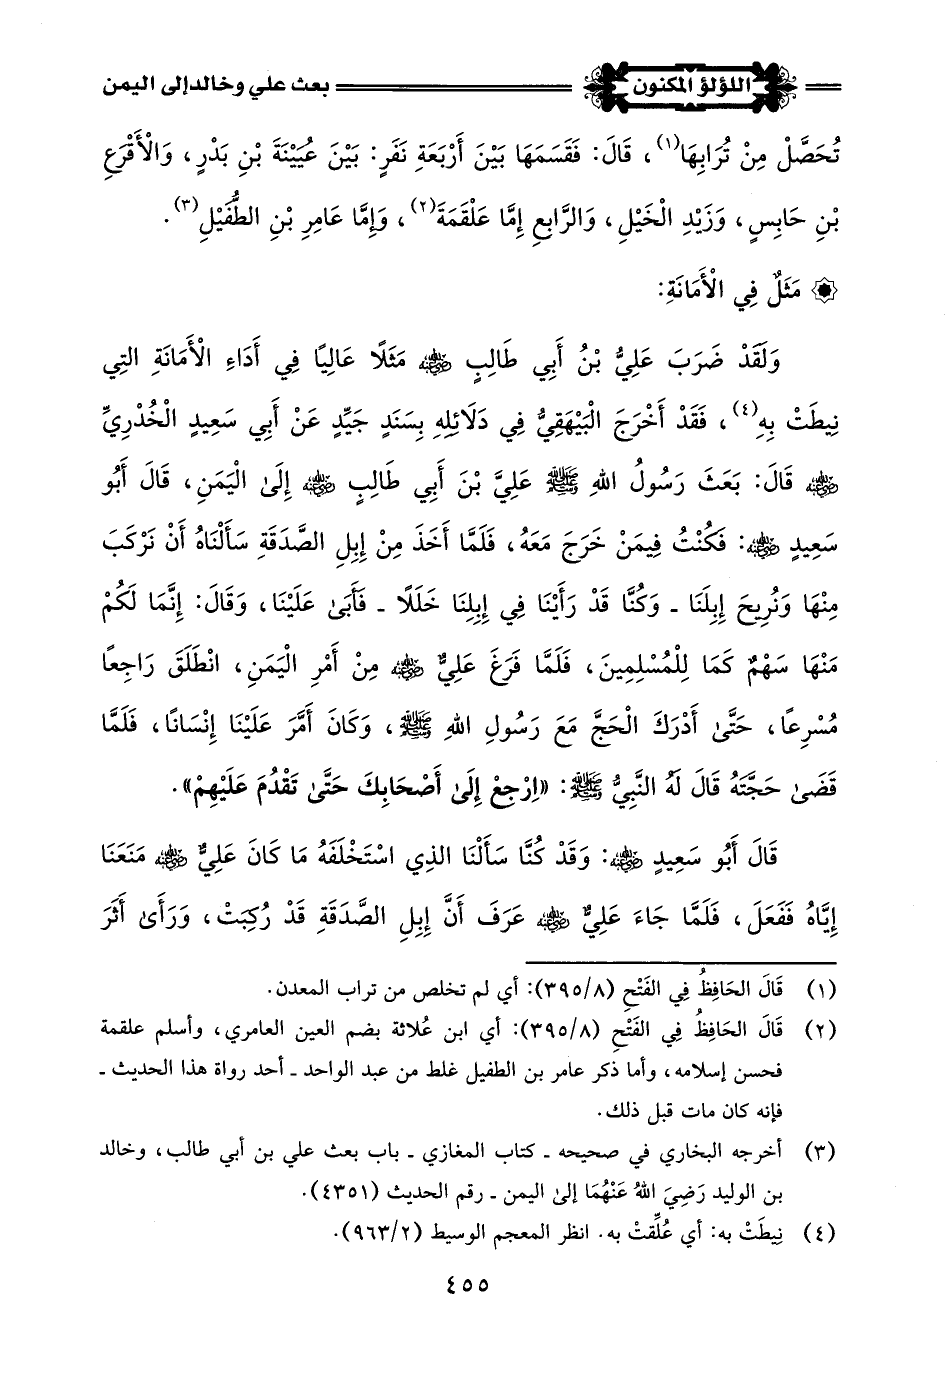 اللؤلؤ المكنون بعث علي وخالد إلى اليمن
تُحَصَّلْ مِنْ تُرَابِهَا(١)، قَالَ: فَقَسَمَهَا بَيْنَ أَرْبَعَةِ نَفَرٍ: بَيْنَ عُيَيْنَةَ بْنِ بَدْرٍ، وَالْأَقْرَعِ
بْنِ حَابِسٍ، وَزَيْدِ الْخَيْلِ، وَالرَّابِعِ إِمَّا عَلْقَمَةَ(٢)، وَإِمَّا عَامِرِ بْنِ الطُّفَيْلِ(٣).
مَثَلٌ فِي الْأَمَانَةِ:
وَلَقَدْ ضَرَبَ عَلِيُّ بْنُ أَبِي طَالِبٍ ﵁ مَثَلًا عَالِيًا فِي أَدَاءِ الْأَمَانَةِ التِي
نِيطَتْ بِهِ(٤)، فَقَدْ أَخْرَجَ الْبَيْهَقِيُّ فِي دَلَائِلِهِ بِسَنَدٍ جَيِّدٍ عَنْ أَبِي سَعِيدٍ الْخُدْرِيِّ
﵁ قَالَ: بَعَثَ رَسُولُ اللهِ ﷺ عَلِيَّ بْنَ أَبِي طَالِبٍ ﵁ إِلَىٰ الْيَمَنِ، قَالَ أَبُو
سَعِيدٍ ﵁: فَكُنْتُ فِيمَنْ خَرَجَ مَعَهُ، فَلَمَّا أَخَذَ مِنْ إِبِلِ الصَّدَقَةِ سَأَلْنَاهُ أَنْ نَرْكَبَ
مِنْهَا وَنُرِيحَ إِبِلَنَا - وَكُنَّا قَدْ رَأَيْنَا فِي إِبِلِنَا خَلَلًا - فَأَبَىٰ عَلَيْنَا، وَقَالَ: إِنَّمَا لَكُمْ
مَنْهَا سَهْمٌ كَمَا لِلْمُسْلِمِينَ، فَلَمَّا فَرَغَ عَلِيٌّ ﵁ مِنْ أَمْرِ الْيَمَنِ، انْطَلَقَ رَاجِعًا
مُسْرِعًا، حَتَّىٰ أَدْرَكَ الْحَجَّ مَعَ رَسُولِ اللهِ ﷺ، وَكَانَ أَمَّرَ عَلَيْنَا إِنْسَانًا، فَلَمَّا
قَضَىٰ حَجَّتَهُ قَالَ لَهُ النَّبِيُّ ﷺ: «اِرْجِعْ إِلَىٰ أَصْحَابِكَ حَتَّىٰ تَقْدُمَ عَلَيْهِمْ».
قَالَ أَبُو سَعِيدٍ ﵁: وَقَدْ كُنَّا سَأَلْنَا الذِي اسْتَخْلَفَهُ مَا كَانَ عَلِيٌّ ﵁ مَنَعَنَا
إِيَّاهُ فَفَعَلَ، فَلَمَّا جَاءَ عَلِيٌّ ﵁ عَرَفَ أَنَّ إِبِلِ الصَّدَقَةِ قَدْ رُكِبَتْ، وَرَأَىٰ أَثَرَ
(١) قَالَ الحَافِظُ فِي الفَتْحِ (٣٩٥/٨): أي لم تخلص من تراب المعدن.
(٢) قَالَ الحَافِظُ فِي الفَتْحِ (٣٩٥/٨): أي ابن عُلاثة بضم العين العامري، وأسلم علقمة
فحسن إسلامه، وأما ذكر عامر بن الطفيل غلط من عبد الواحد - أحد رواة هذا الحديث -
فإنه كان مات قبل ذلك.
(٣) أخرجه البخاري في صحيحه - كتاب المغازي - باب بعث علي بن أبي طالب، وخالد
بن الوليد رَضِيَ اللهُ عَنْهُمَا إلىٰ اليمن - رقم الحديث (٤٣٥١).
(٤) نِيطَتْ به: أي عُلِّقتْ به. انظر المعجم الوسيط (٩٦٣/٢).
٤٥٥